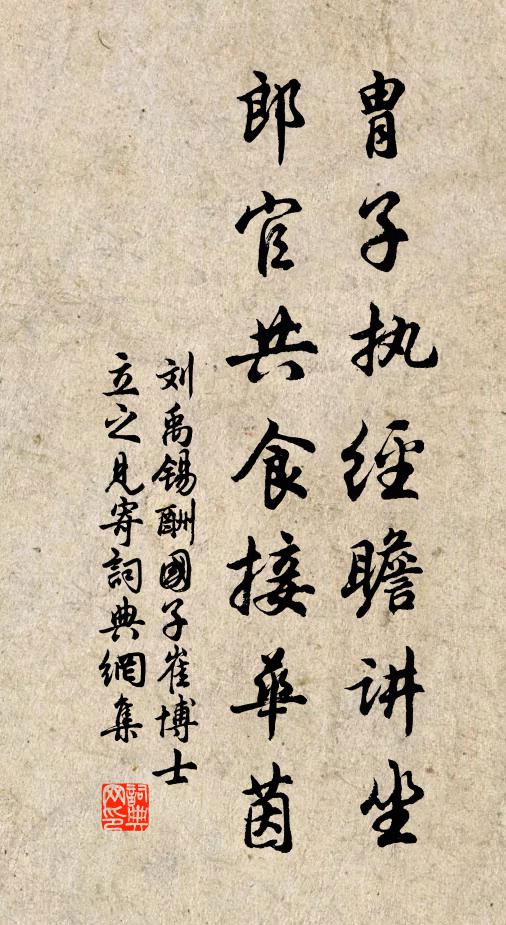 胄子执經瞻讲坐
郎官共食接華茵
刘禹锡酬國子崔博士
立之見寄詞典網集
詞典
网印